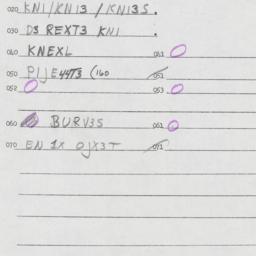 020 KNI/KNI3/KNI3S.
030 D3 REXT3 KNI .
040 KNEXL 041
050 PIJE44T3 (160 051
052 053
060 BURV3S 061
070 EN 1X OJX3T 071